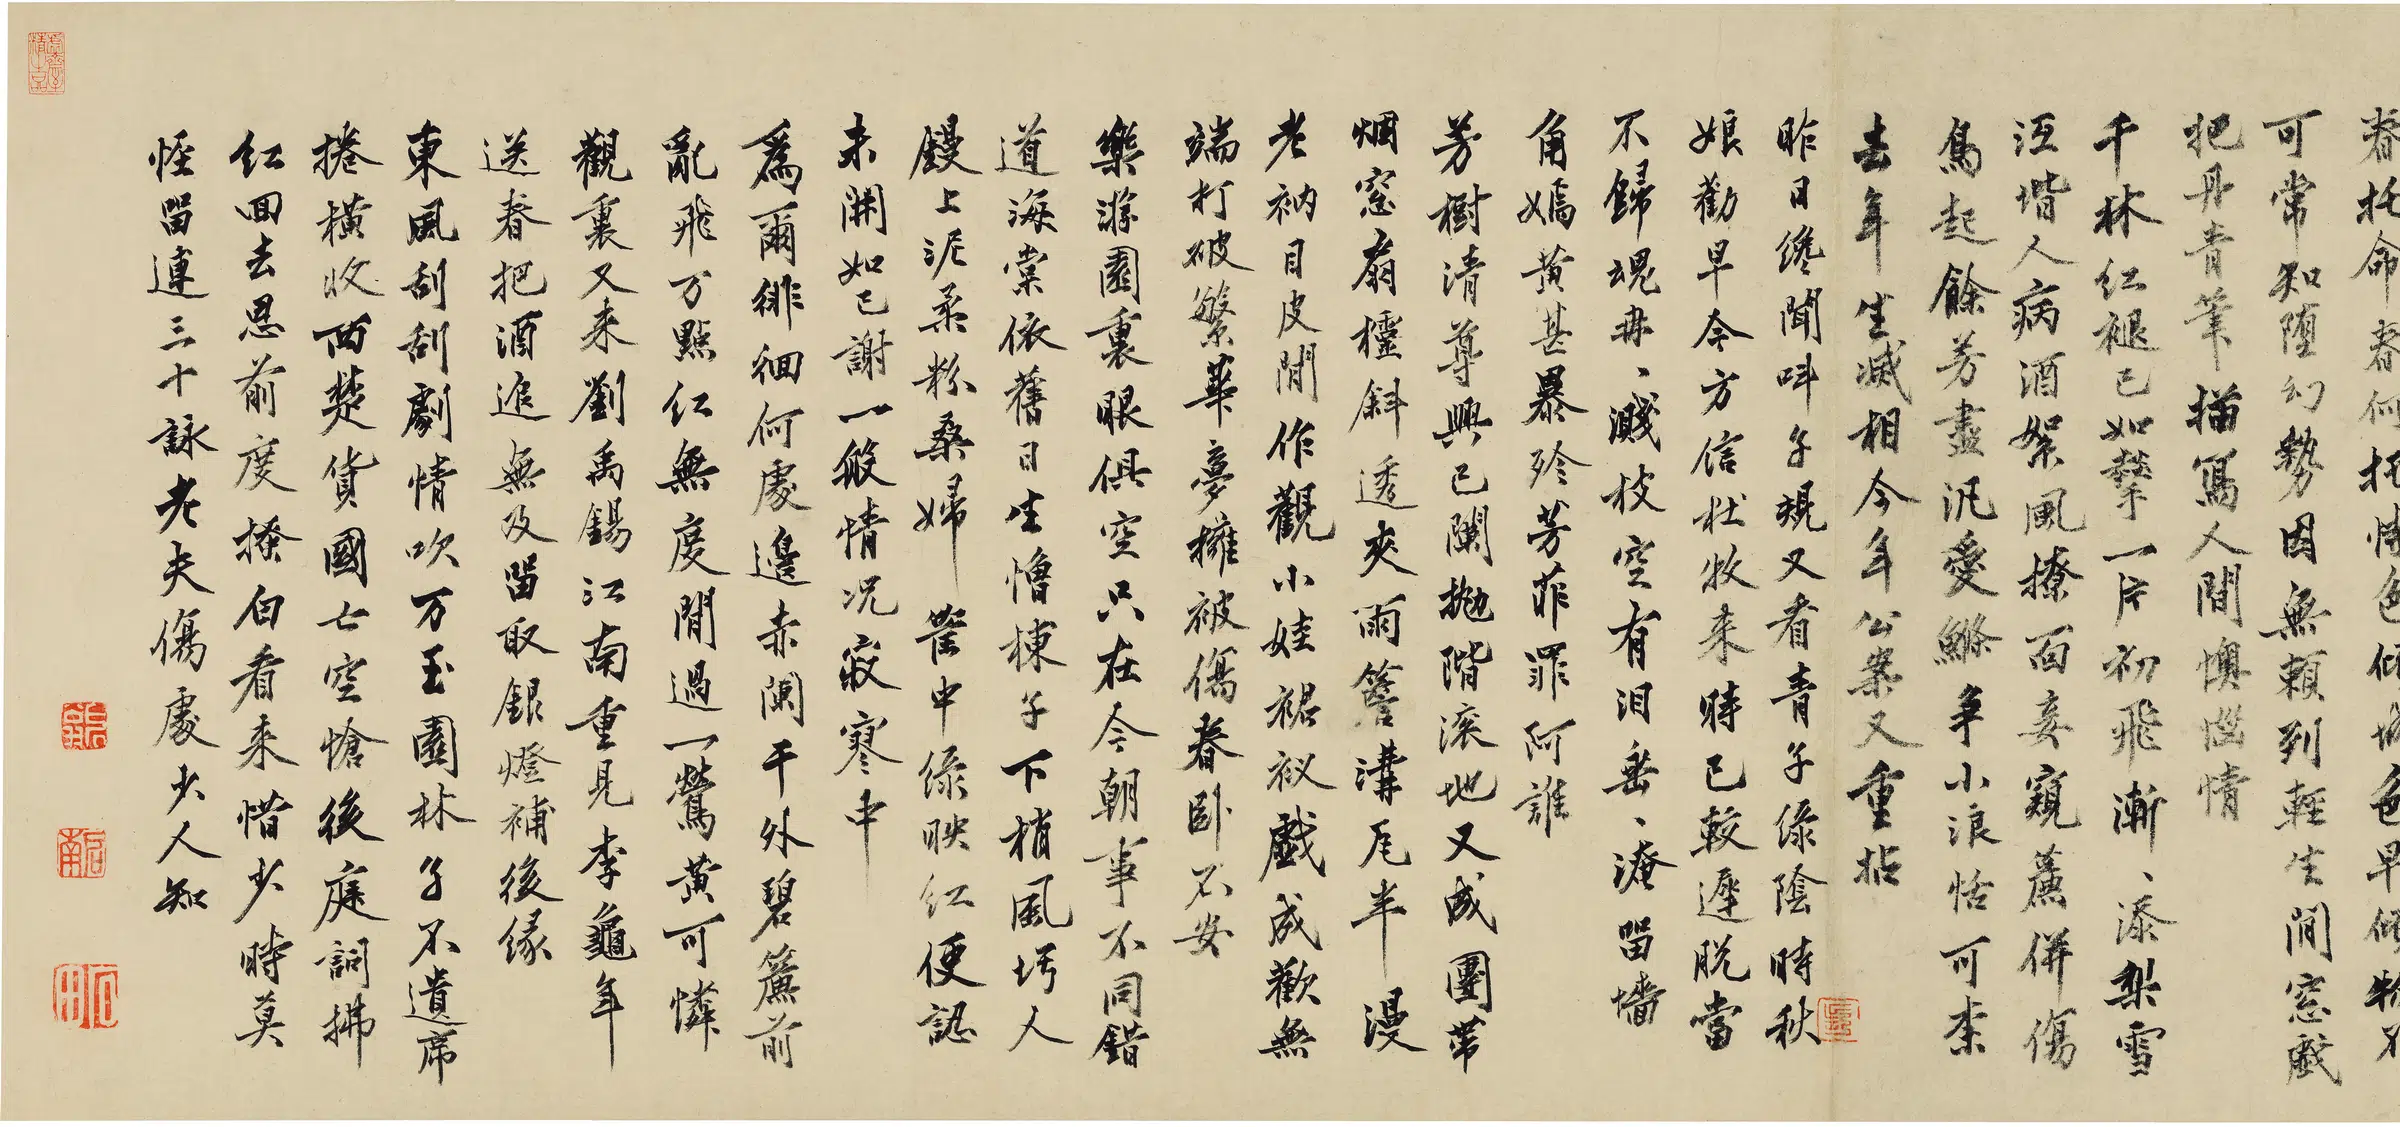 春托命春何托情色傾城色早傾物不
可常知堕幻勢因無賴到輕生閒窓戲
把丹青筆描寫人間懊惱情
千林紅褪已如摯一片初飛漸、添梨雪
沍堦人病酒絮風撩面妾窺蕉併傷
鳥起餘芳盡汎愛鰷爭小浪恬可柰
去年生滅相今年公案又重拈
昨日纔聞呌子規又看青子綠陰時秋
娘勸早今方信杜牧來時已較遲脫當
不歸魂冉、濺枝空有泪垂、淹留墻
角嫣黃甚暴殄芳菲罪阿誰
芳樹清尊興已闌拋階滚地又成團常
烟窓扇櫺斜透夾雨簷溝尾半漫
老衲目皮閒作觀小娃裙衩戲成歡無
端打破繁華夢擁被傷春卧不安
樂游園裏眼俱空只在今朝事不同錯
道海棠依舊日生憎楝子下梢風圬人
鏝上泥柔粉桑婦鬟中綠映紅便認
未開如已謝一般情况寂寥中
爲爾徘徊何處邊赤闌干外碧簾前
亂飛万點紅無度閒過一鶯黃可憐
觀裏又来劉禹錫江南重見李龜年
送春把酒追無及留取銀燈補後緣
東風刮刮劇情吹万玉園林子不遺席
捲橫收西楚貨國亡空愴後庭詞拂
紅回去思前度撩白看来惜少時莫
怪留連三十詠老夫傷處少人知